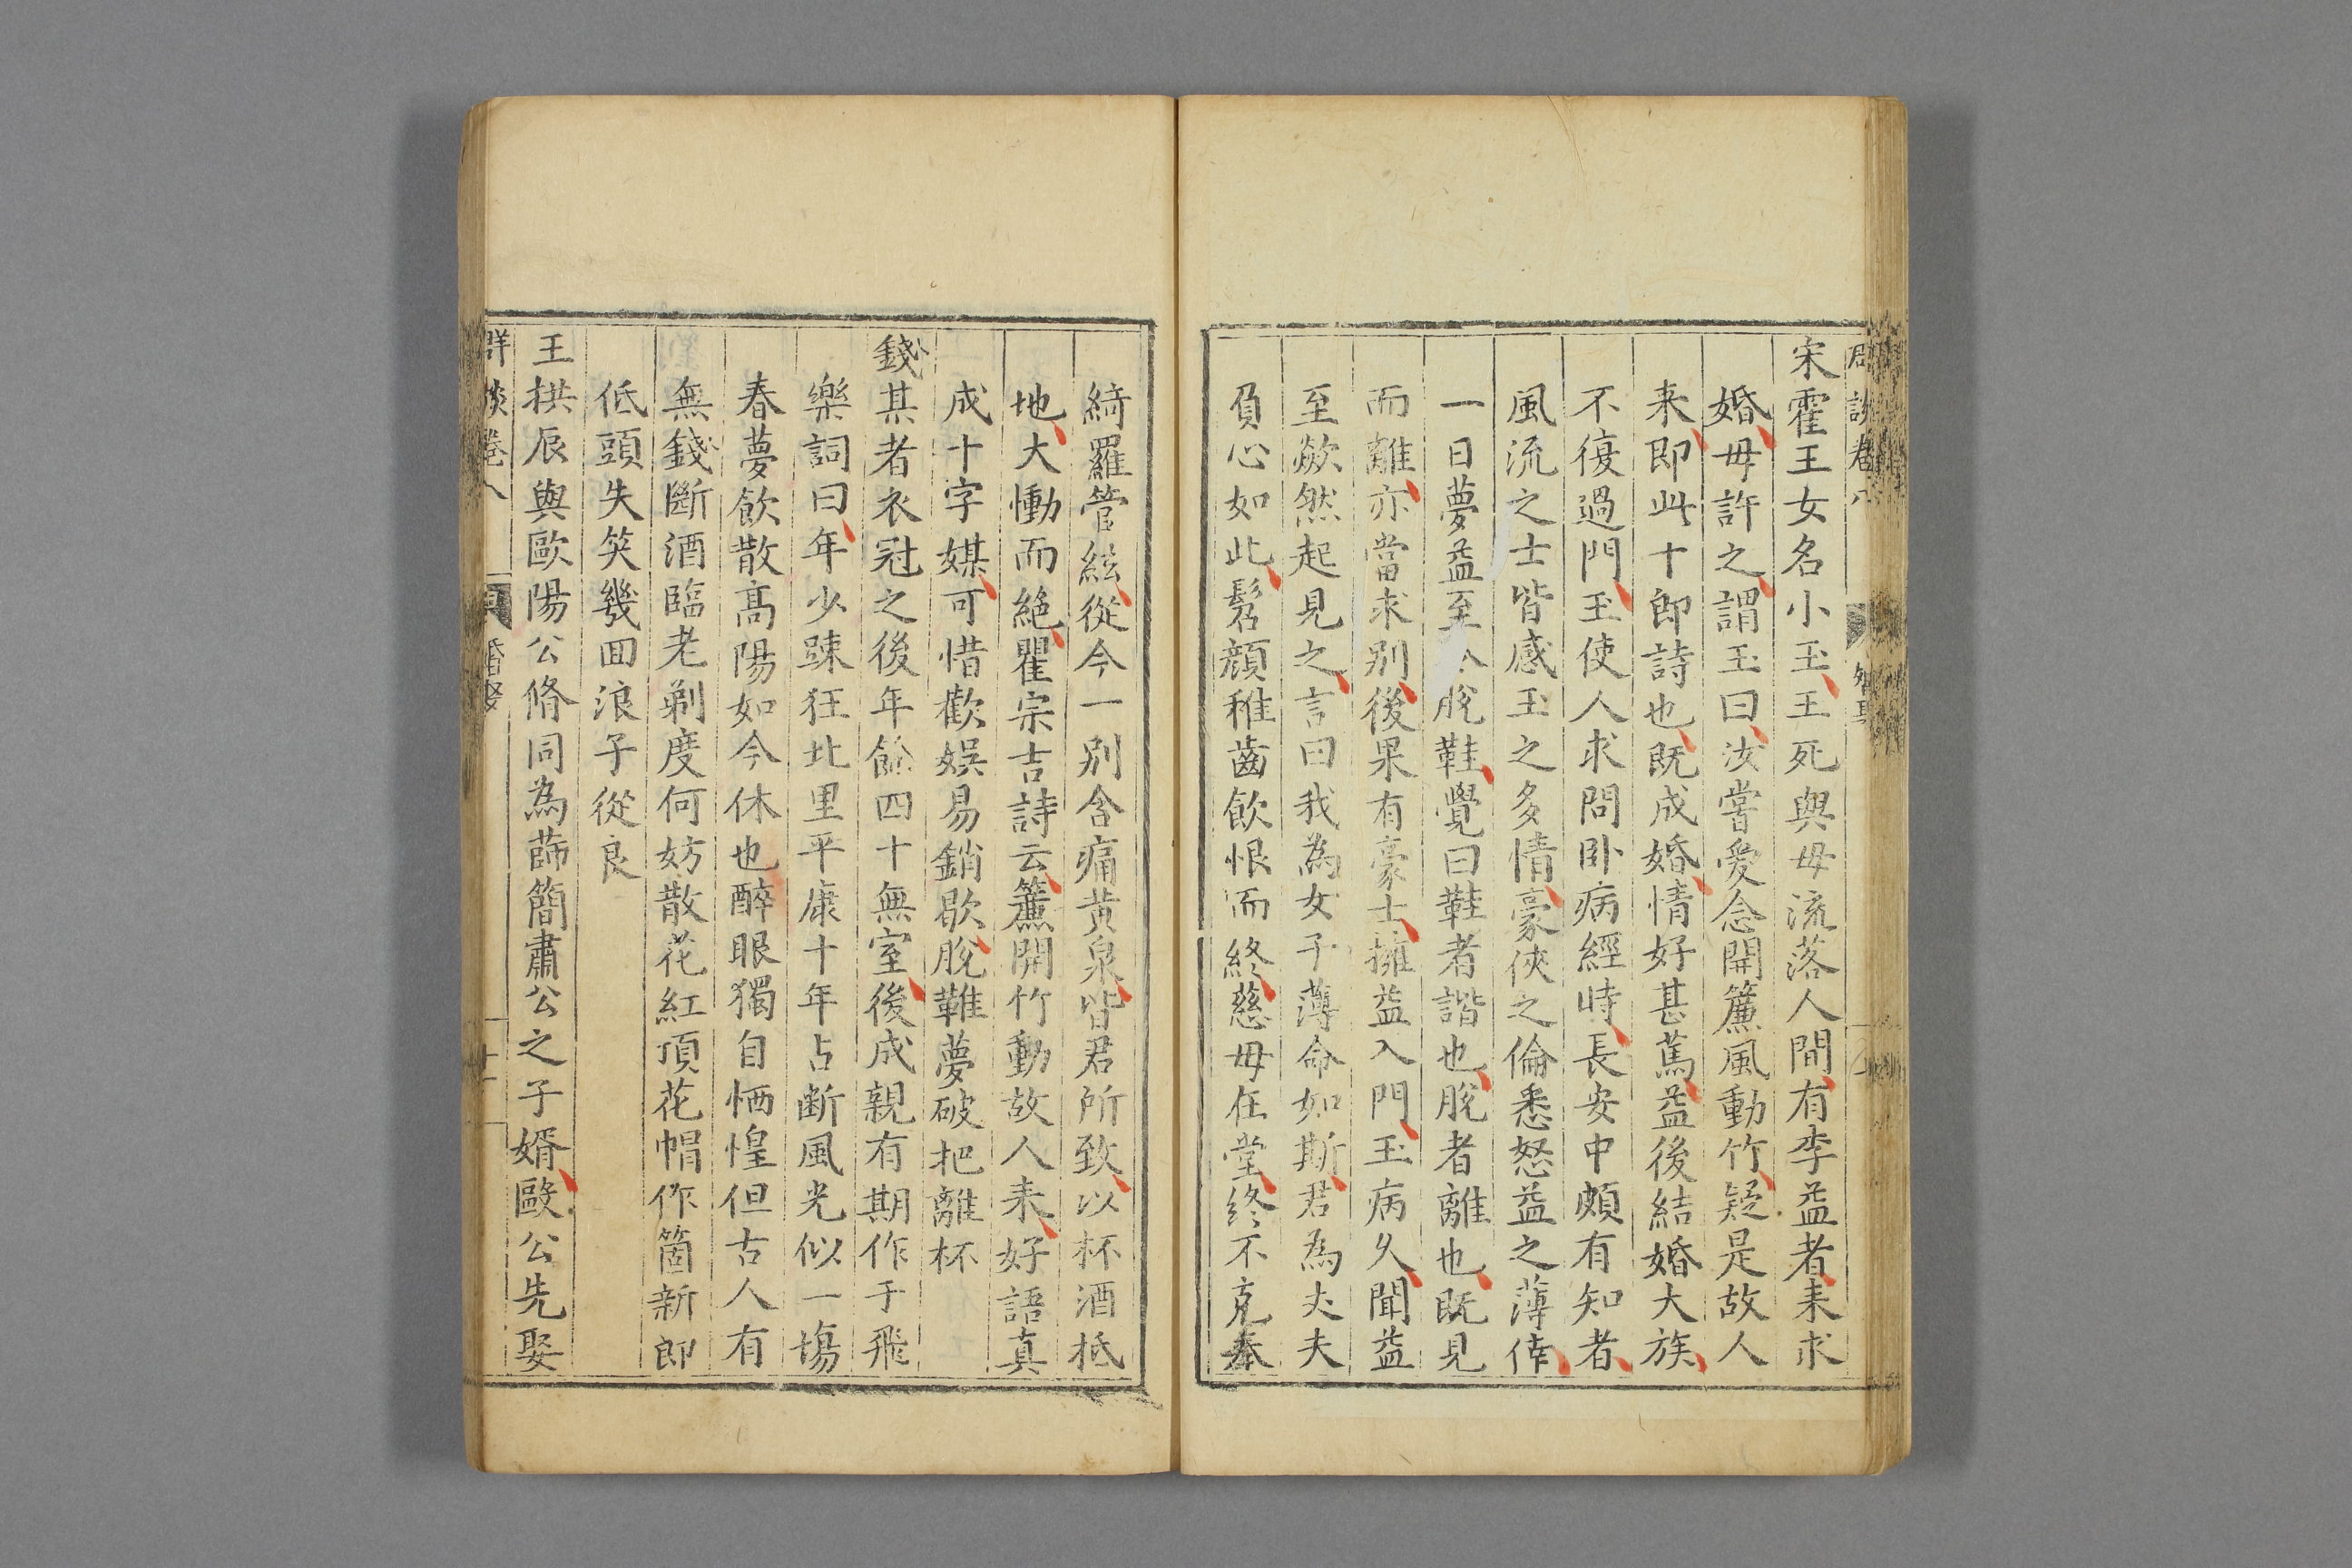 宋霍王女名小玉王死與母流落人間有李益者来求
婚母許之謂玉曰汝嘗愛念開簾風動竹疑是故人
来即此十郎詩也既成婚情好甚篤益後結婚大族
不復過門玉使人求問卧病經時長安中頗有知者
風流之士皆感玉之多情豪俠之倫悉怒益之薄倖
一日夢益至令脫鞋覺曰鞋者諧也脫者離也既見
而離亦當求別後果有豪士擁益入門玉病久聞益
至歘然起見之言曰我為女子薄命如斯君為丈夫
負心如此髫顔稚齒飲恨而終慈母在堂終不克奉
綺羅管絃從今一別含痛黄泉皆君所致以杯酒抵
地大慟而絕瞿宗吉詩云簾開竹動故人来好語真
成十字媒可惜歡娛易銷歇脫鞋夢破把離杯
錢某者衣冠之後年餘四十無室後成親有期作于飛
樂詞曰年少踈狂北里平康十年占断風光似一塲
春夢飲散髙陽如今休也醉眼獨自恓惶但古人有
無錢斷酒臨老剃度何妨散花紅頂花帽作箇新郎
低頭失笑幾囬浪子從良
王拱辰與歐陽公脩同為薛簡肅公之子婿歐公先娶
群談卷八
婚娶
十一